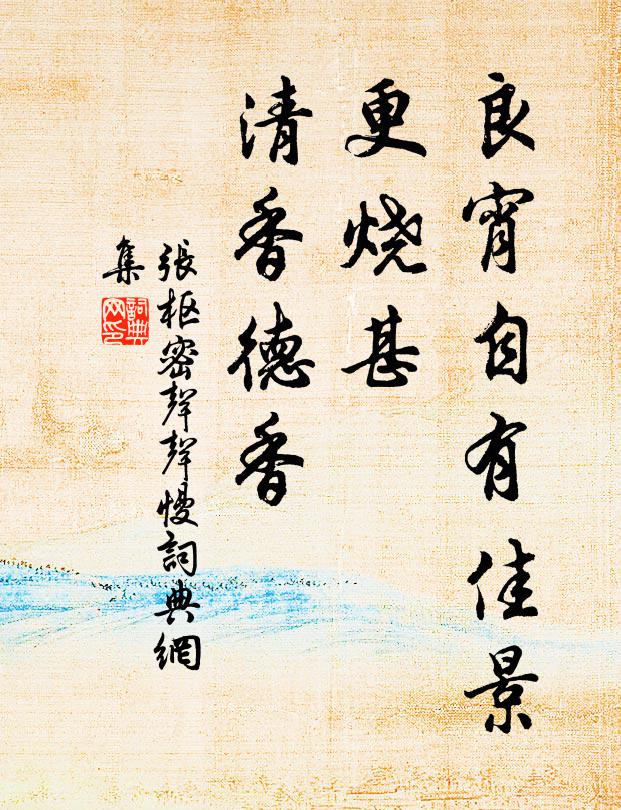 良宵自有佳景
更烧甚
清香德香
張枢密聲聲慢詞典網
集
詞典
网印